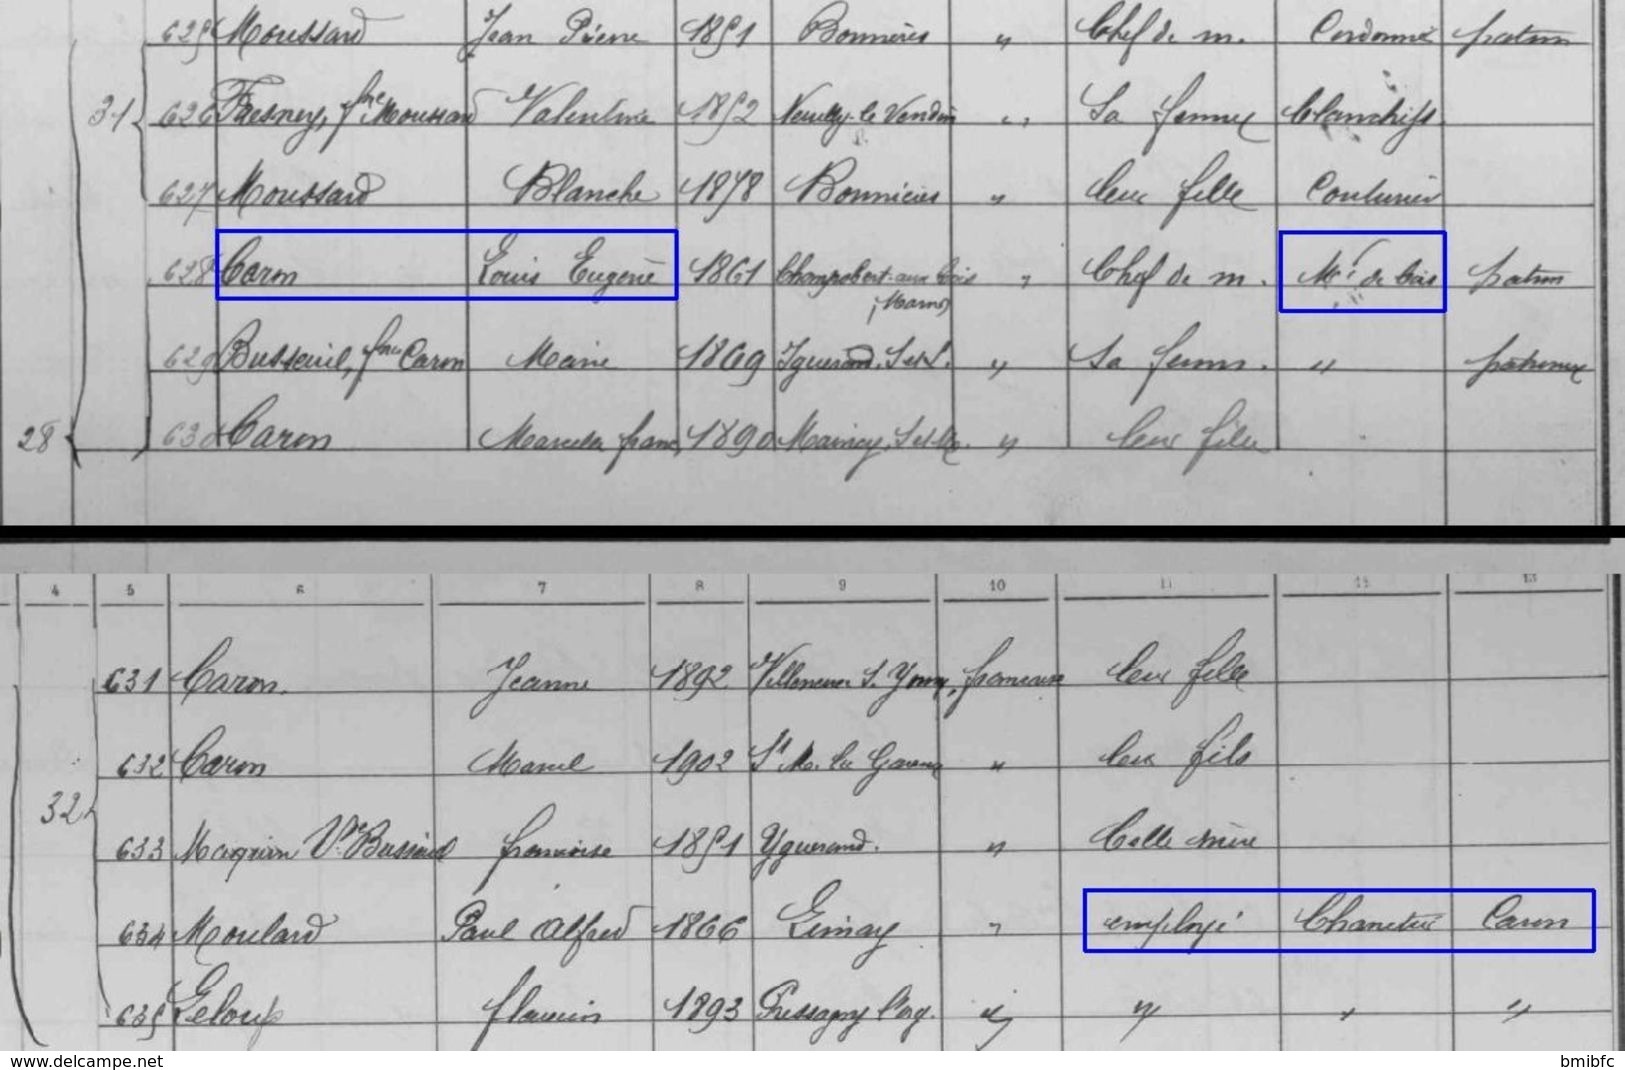 625 Moussard Jean Pierre 1851 Bonnières " Chef de m. Cordonnier patron
31
626 Fresney, fme Moussard Valentine 1852 Neuilly-le-Vendin " Sa femme blanchiss.
627 Moussard Blanche 1878 Bonnières " leur fille Couturière
628 Caron Louis Eugène 1861 Champaubert-aux-bois " Chef de m. Md de bois patron
(Marne)
629 Busseuil, fme Caron Marie 1869 Iguerand. S.et L. " Sa femm. " patronne
28
630 Caron 1890 Maincy, S.et M. " leur fille
4 5 6 7 8 9 10 11 12 13
631 Caron. Jeanne 1892 Villeneuve S. Yonne, française leur fille
632 Caron Marcel 1902 St M. la Garenne " leur fils
32
633 Vve Busseuil françoise 1851 Yguerand. " belle mère
634 Moulard Paul Alfred 1866 Limay " employé Charretier Caron
635 Leloup 1893 Pressagny l'org. " " " "
www.delcampe.net
bmibfc